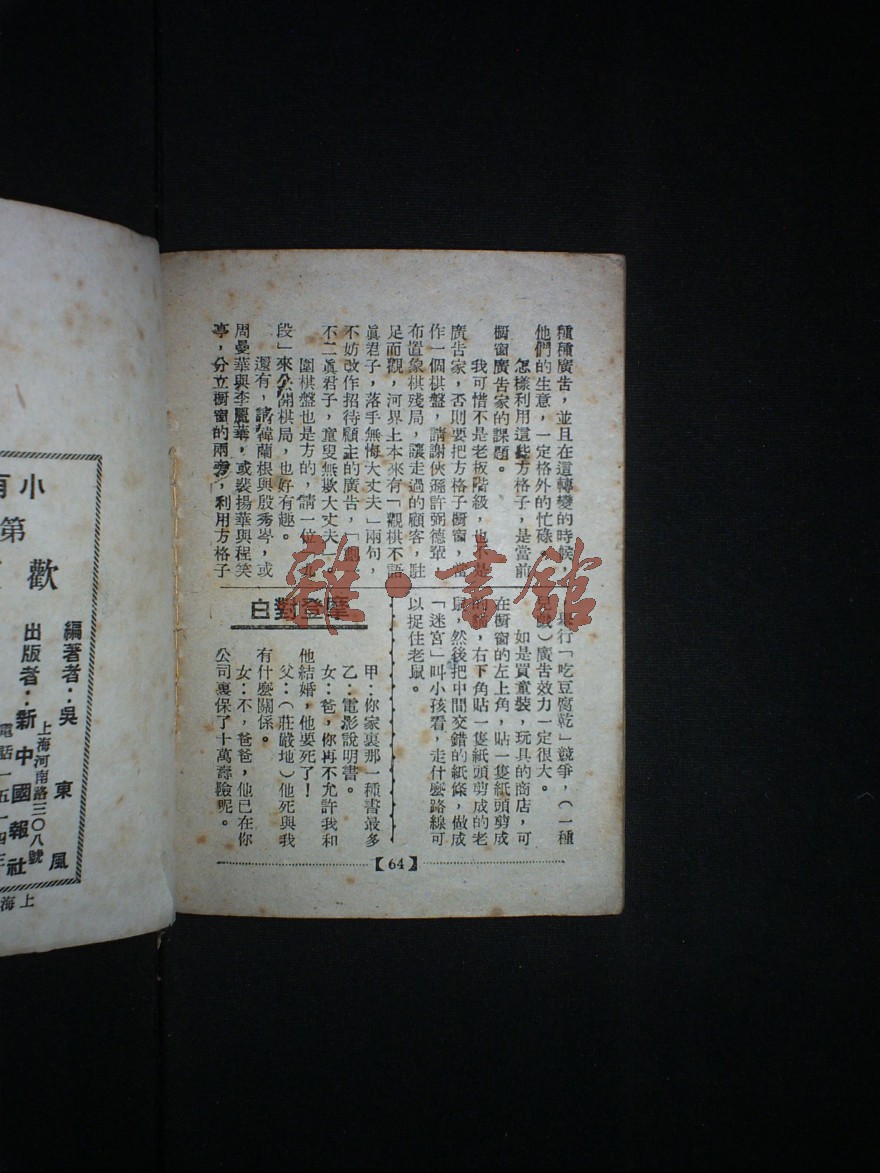 種種廣告，並且在這轉變的時候，
他們的生意，一定格外的忙碌。
怎樣利用這些方格子，是當前
橱窗廣告家的課題。
我可惜不是老板階級，也不是
廣告家，否則要把方格子橱窗，當
作一個棋盤，請謝俠遜許弼德輩，
布置象棋殘局，讓走過的顧客，駐
足而觀，河界上本來有「觀棋不語
眞君子，落手無悔大丈夫」兩句，
不妨改作招待顧主的廣告，「
不二眞君子，童叟無欺大丈夫」。
圍棋盤也是方的，請一位「九
段」來公開棋局，也好有趣。
還有，請韓蘭根與殷秀岑，或
周曼華與李麗華，或裴揚華與程笑
亭，分立橱窗的兩旁，利用方格子
舉行「吃豆腐乾」競爭，（一種
遊戲）廣告效力一定很大。
如是買童裝，玩具的商店，可
在橱窗的左上角，貼一隻紙頭剪成
的貓，右下角貼一隻紙頭剪成的老
鼠，然後把中間交錯的紙條，做成
「迷宮」叫小孩看，走什麼路線可
以捉住老鼠。
摩登對白
甲：你家裏那一種書最多
乙：電影說明書。
女：爸，你再不允許我和
他結婚，他要死了！
父：（莊嚴地）他死與我
有什麼關係。
女：不，爸爸，他已在你
公司裏保了十萬壽險呢。
【64】
小
第
歡
編著者：吳東風
出版者：新中國報社
上海河南路三〇八號
電話一五一四
上海
雜·書館